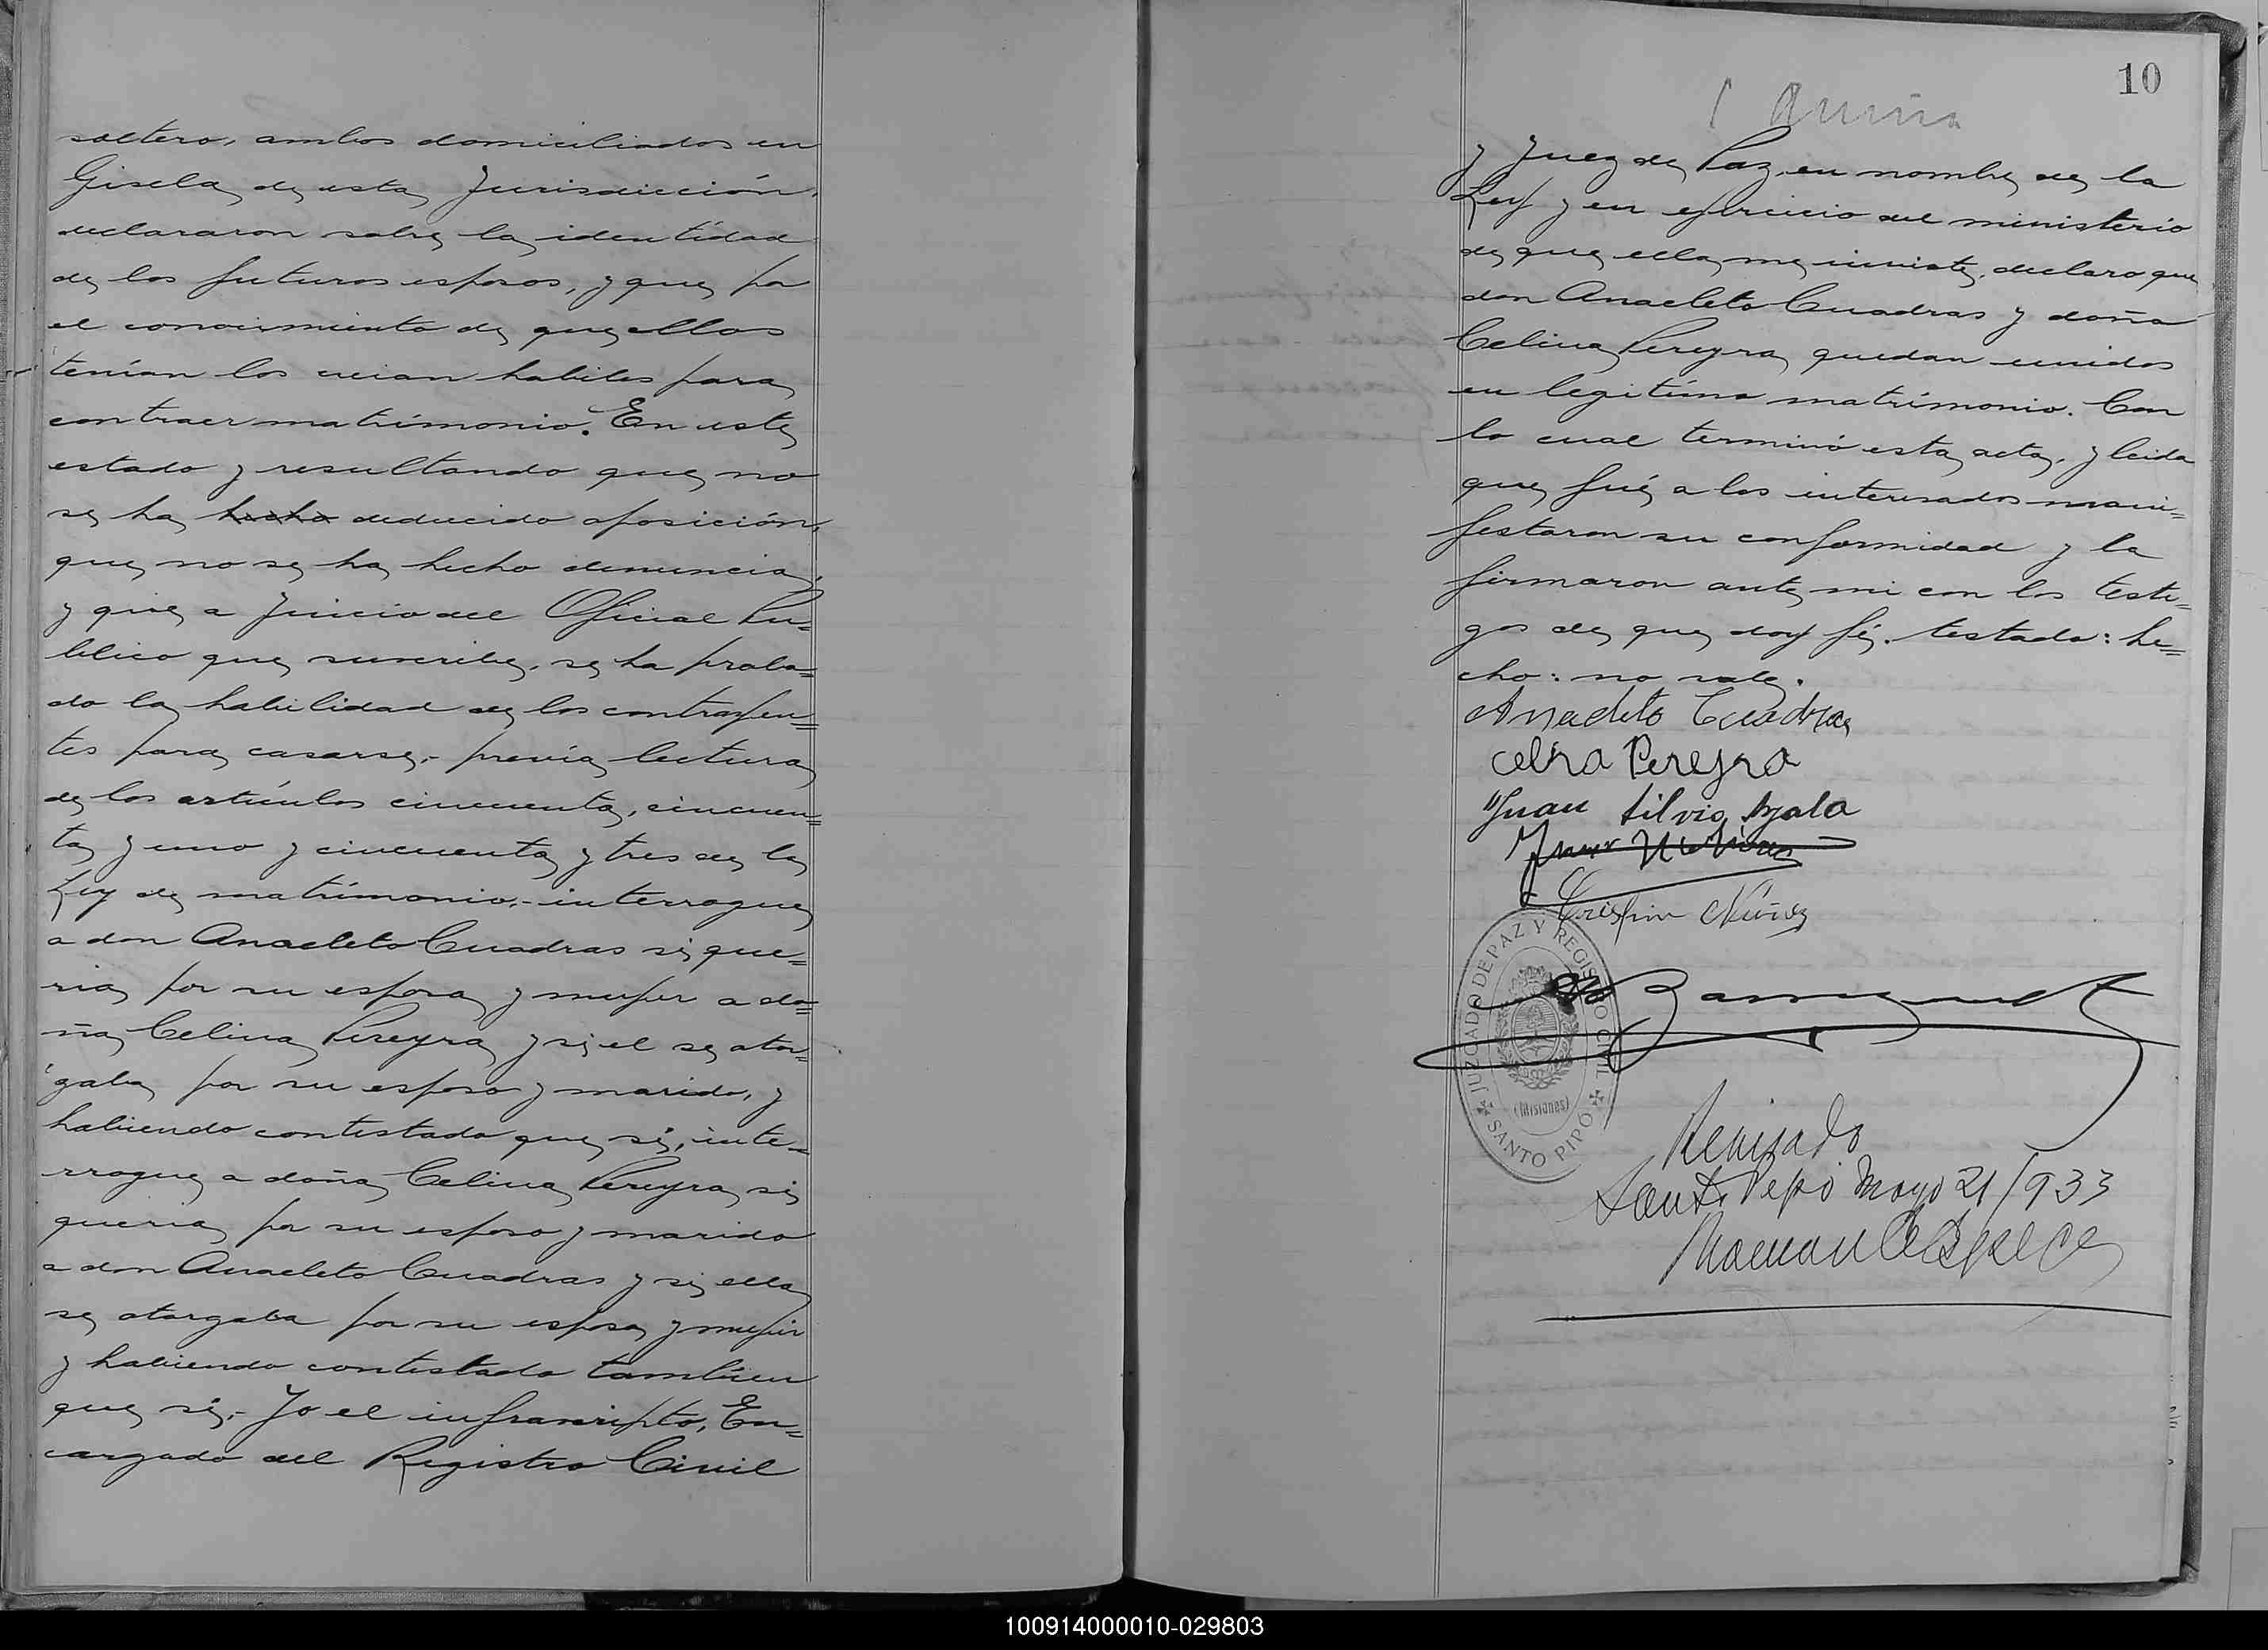 soltero, ambos domiciliados en
Gisela, de esta Jurisdicción,
declararon sobre la identidad
de los futuros esposos, y que por
el conocimiento de que ellos
tenían los creian habiles para
contraer matrimonio. En este
estado y resultando que no
se ha hecho deducido oposición,
que no se ha hecho denuncia,
y que a juicio del Oficial Pú=
blico que suscribe, se ha proba=
do la habilidad de los contrayen=
tes para casarse,- previa lectura
de los artículos cincuenta, cincuen=
ta y uno y cincuenta y tres de la
Ley de matrimonio,- interrogue
a don Anacleto Cuadras si que=
ria por su esposa y mujer a do=
ña Celina Pereyra y si el se otor=
gaba por su esposo y marido, y
habiendo contestado que si, inte=
rrogue a doña Celina Pereyra si
queria por su esposo y marido
a don Anacleto Cuadras y si ella
se otorgaba por su esposa y mujer
y habiendo contestado tambien
que si,- Yo el infrascripto, En=
cargado del Registro Civil
10
y Juez de Paz, en nombre de la
Ley y en ejercicio del ministerio
de que ella me inviste, declaro que
don Anacleto Cuadras y doña
Celina Pereyra quedan unidos
en legitimo matrimonio. Con
lo cual terminó esta acta, y leida
que fué a los interesados mani=
festaron su conformidad y la
firmaron ante mi con los testi=
gos de que doy fé. testado: he=
cho: no vale.
Anacleto Cuadras
Celina Pereyra
Juan Silvio Ayala
Crispin Núñez
JUZGADO DE PAZ Y REGISTRO CIVIL
(Misiones)
SANTO PIPÓ
Revisado
Santo Pipó Mayo 21/933
100914000010-029803